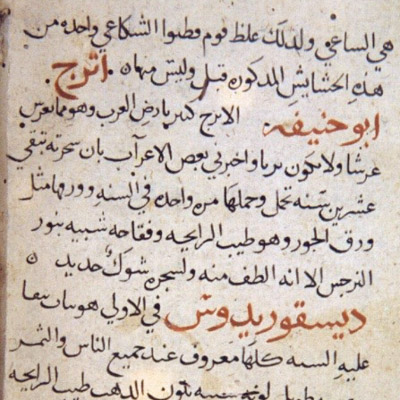 هي الساعي ولذلك غلط قوم فظنوا الشكاعي واحده من
هذه الحشايش المذكوره قبل وليس منها ه اترج
ابو حنيفه الاترج كثير بارض العرب وهو مما يغرس
غرسا ولا يكون بريا واخبرني بعض الاعراب بان شجرته تبقي
عشرين سنه تحمل وحملها مره واحده في السنه وورقها مثل
ورق الجوز وهو طيب الرايحه وفقاحه شبيه بنور
النرجس الا انه الطف منه ولشجره شوك حديد ه
ديسقوريدوس في الاولي هو نبات يبقا
عليه السنه كلها معروف عند جميع الناس والثمر
طويل لونه شبيه بلون الذهب طيب الرايحه